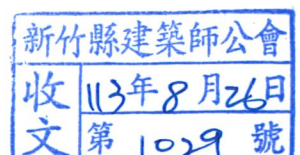 新竹縣建築師公會
收文
113年8月26日
第1029號